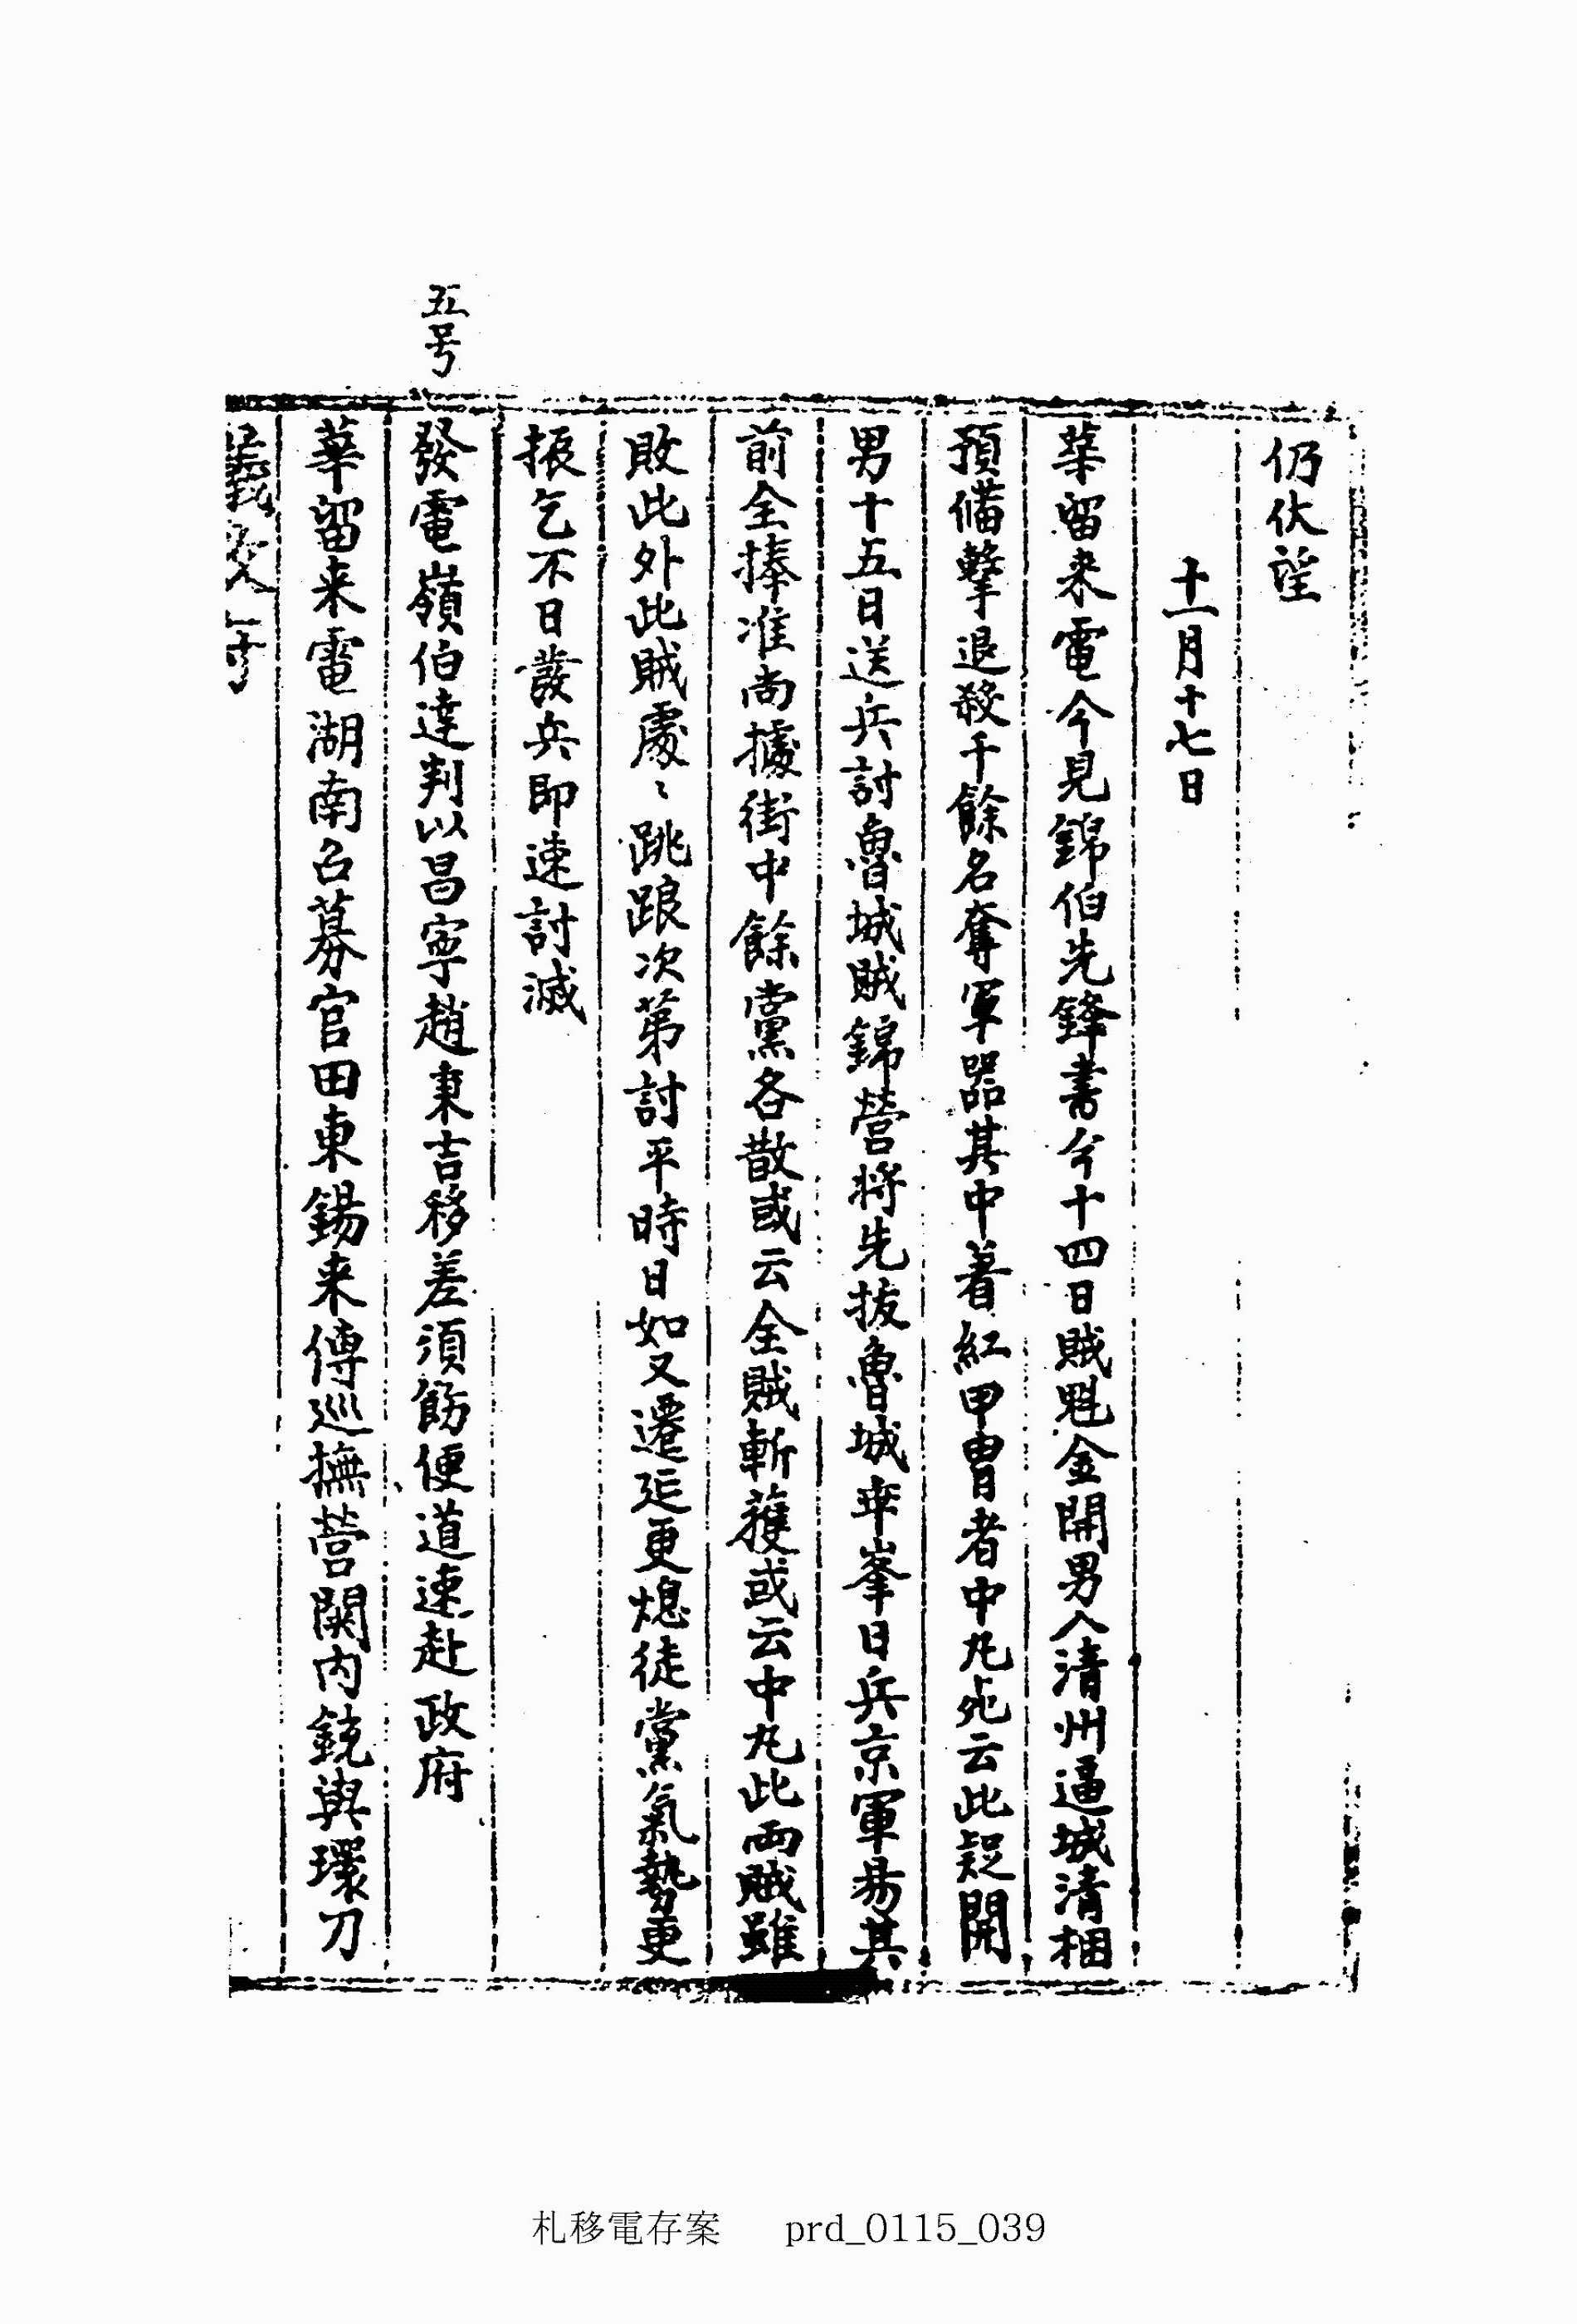 仍伏望
十一月十七日
華留来電今見錦伯先鋒書今十四日賊魁金開男入清州逼城清梱
預備擊退殺千餘名奪軍器其中着紅甲冑者中丸死云此疑開
男十五日送兵討魯城賊錦營將先拔魯城峯日兵京軍易其
前全捧准尚據街中餘黨各散或云全賊斬獲或云中丸此両賊雖
敗此外此賊處〻跳踉次第討平時日如又遷延更熄徒黨氣勢更
振乞不日發兵即速討滅
五号
發電嶺伯達判以昌寧趙秉吉移差須飭便道速赴政府
華留来電湖南召募官田東錫来傳巡撫營関内銃與環刀